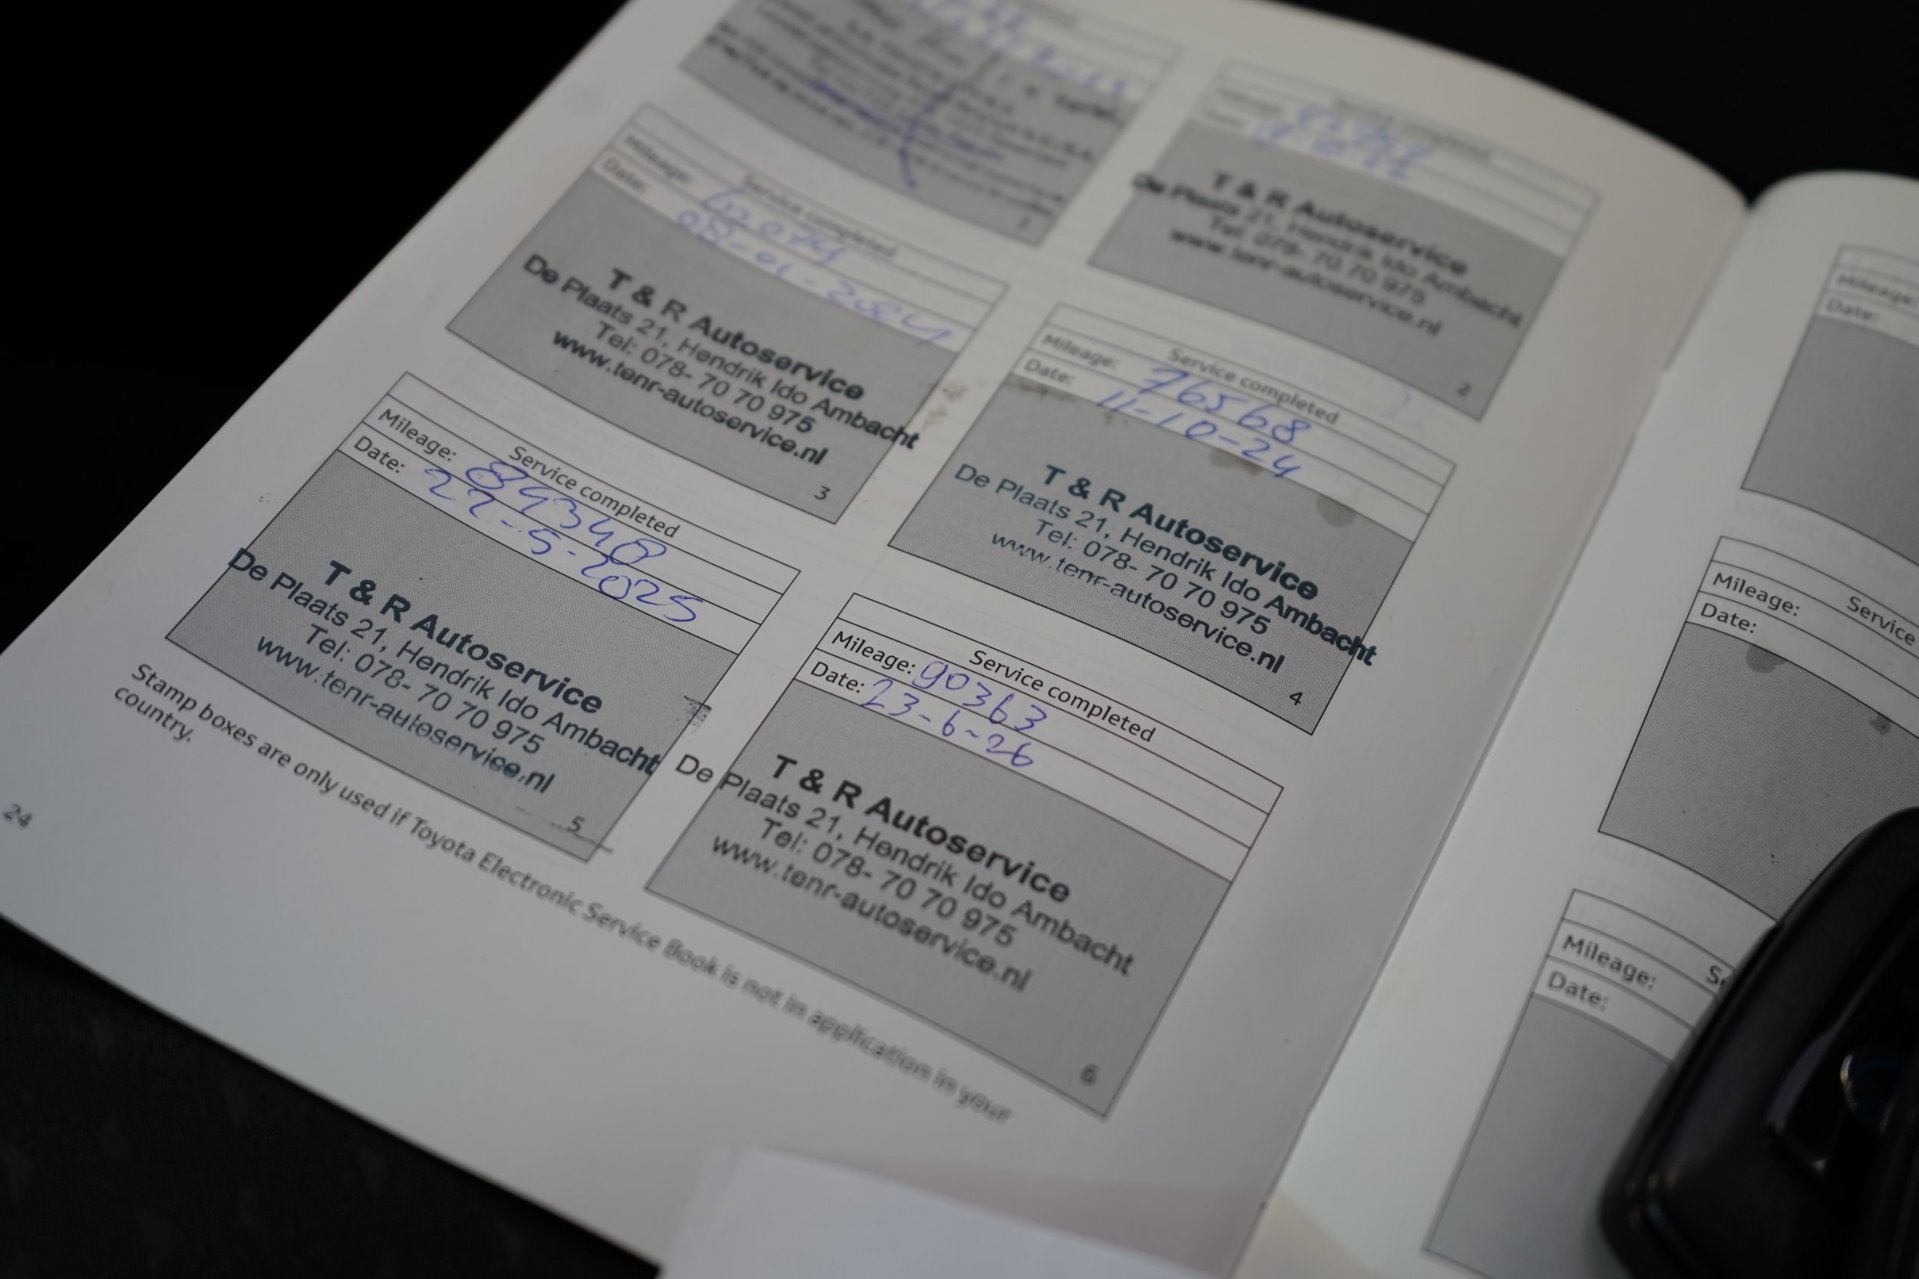 Service completed
Mileage:
T & R Autoservice
De Plaats 21, Hendrik Ido Ambacht
Tel: 078- 70 70 975
www.tenr-autoservice.nl
2
1
Service completed
Mileage:
Date: 08-01-2024
T & R Autoservice
De Plaats 21, Hendrik Ido Ambacht
Tel: 078- 70 70 975
www.tenr-autoservice.nl
3
Service completed
Mileage: 76568
Date: 11-10-24
T & R Autoservice
De Plaats 21, Hendrik Ido Ambacht
Tel: 078- 70 70 975
www.tenr-autoservice.nl
4
Service completed
Mileage: 84348
Date: 22-5-2025
T & R Autoservice
De Plaats 21, Hendrik Ido Ambacht
Tel: 078- 70 70 975
www.tenr-autoservice.nl
5
Service completed
Mileage: 90363
Date: 23-6-26
T & R Autoservice
De Plaats 21, Hendrik Ido Ambacht
Tel: 078- 70 70 975
www.tenr-autoservice.nl
6
Stamp boxes are only used if Toyota Electronic Service Book is not in application in your
country.
24
Mileage:
Date:
Service
Mileage:
Date:
Mileage:
Date: